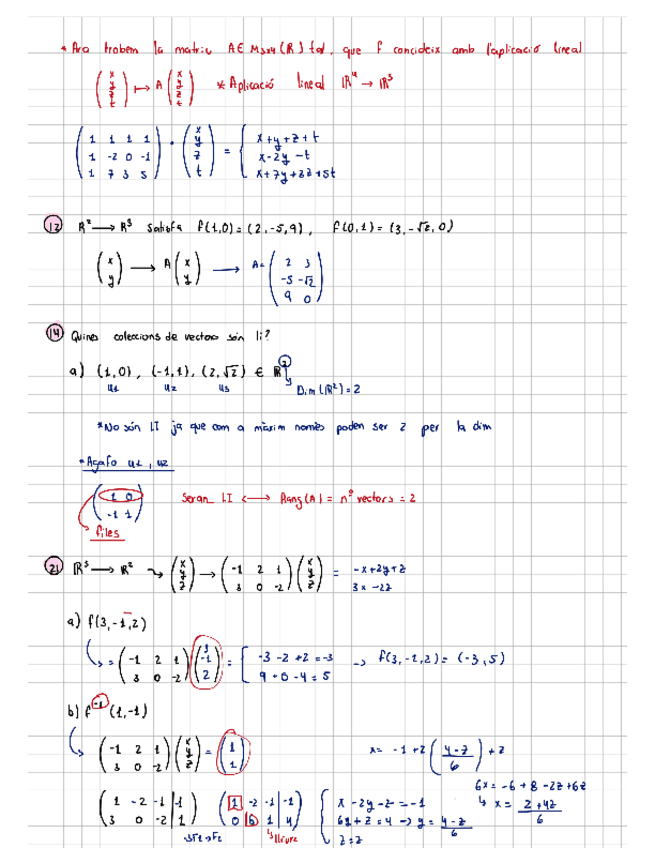 * Ara trobem la matriu A ∈ M₃ₓ₄(ℝ) tal, que f concideix amb l'aplicació lineal
(x y z t) ↦ A (x y z t) * Aplicació lineal ℝ⁴ → ℝ³
(1 1 1 1 / 1 -2 0 -1 / 1 7 3 5) · (x y z t) = { x+y+z+t / x-2y -t / x+7y+3z+5t
12 ℝ² → ℝ³ satisfa f(1,0)=(2,-5,9), f(0,1)=(3,-√2,0)
(x y) → A (x y) → A = (2 3 / -5 -√2 / 9 0)
14 Quines coleccions de vectors són li?
a) (1,0), (-1,1), (2,√2) ∈ ℝ²
u1 u2 u3 Dim(ℝ²)=2
*No són LI ja que com a màxim només poden ser 2 per la dim
*Agafo u1, u2
(1 0 / -1 1) Seran LI ⟷ Rang(A) = nº vectors = 2
files
21 ℝ³ → ℝ² ↝ (x y z) → (-1 2 1 / 3 0 -2) (x y z) = -x+2y+z / 3x -2z
a) f(3,-1,2)
= (-1 2 1 / 3 0 -2) (3 -1 2) = { -3 -2 +2 = -3 / 9 +0 -4 = 5 → f(3,-1,2) = (-3,5)
b) f⁻¹(1,-1)
(-1 2 1 / 3 0 -2) (x y z) = (1 1) x = -1 +2 (4-z / 6) + z
6x = -6 + 8 -2z +6z
↳ x = 2+4z / 6
(1 -2 -1 | -1 / 3 0 -2 | 1) (1 -2 -1 | -1 / 0 6 1 | 4) { x -2y -z = -1 / 6y + z = 4 → y = 4-z / 6 / z = z
lliure